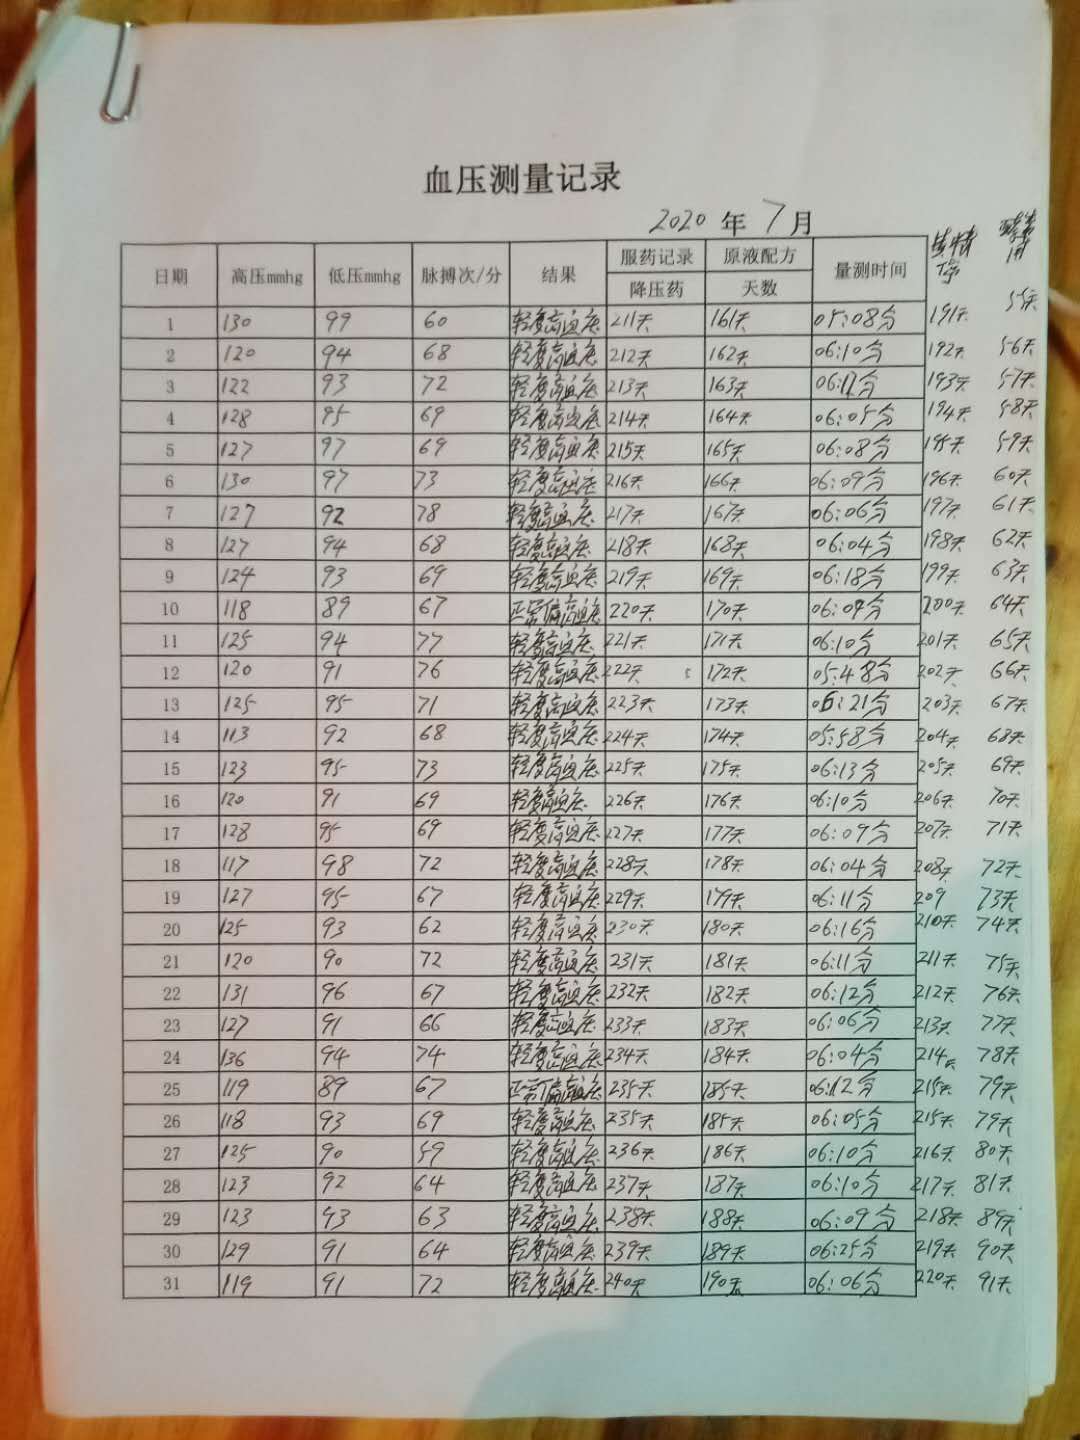 血压测量记录
2020 年 7 月
日期 高压mmhg 低压mmhg 脉搏次/分 结果 服药记录 原液配方 量测时间
降压药 天数
1 130 99 60 轻度高血压 211天 161天 05:08分 191天 55天
2 120 94 68 轻度高血压 212天 162天 06:10分 192天 56天
3 122 93 72 轻度高血压 213天 163天 06:12分 193天 57天
4 128 95 69 轻度高血压 214天 164天 06:05分 194天 58天
5 127 97 69 轻度高血压 215天 165天 06:08分 195天 59天
6 130 97 73 轻度高血压 216天 166天 06:09分 196天 60天
7 127 92 78 轻度高血压 217天 167天 06:06分 197天 61天
8 127 94 68 轻度高血压 218天 168天 06:04分 198天 62天
9 124 93 69 轻度高血压 219天 169天 06:18分 199天 63天
10 118 89 67 正常偏高血压 220天 170天 06:09分 200天 64天
11 125 94 77 轻度高血压 221天 171天 06:10分 201天 65天
12 120 91 76 轻度高血压 222天 172天 05:48分 202天 66天
13 125 95 71 轻度高血压 223天 173天 06:21分 203天 67天
14 113 92 68 轻度高血压 224天 174天 05:58分 204天 68天
15 123 95 73 轻度高血压 225天 175天 06:13分 205天 69天
16 120 91 69 轻度高血压 226天 176天 06:10分 206天 70天
17 128 95 69 轻度高血压 227天 177天 06:09分 207天 71天
18 117 98 72 轻度高血压 228天 178天 06:04分 208天 72天
19 127 95 67 轻度高血压 229天 179天 06:11分 209 73天
20 125 93 62 轻度高血压 230天 180天 06:16分 210天 74天
21 120 90 72 轻度高血压 231天 181天 06:11分 211天 75天
22 131 96 67 轻度高血压 232天 182天 06:12分 212天 76天
23 127 91 66 轻度高血压 233天 183天 06:06分 213天 77天
24 136 94 74 轻度高血压 234天 184天 06:04分 214天 78天
25 119 89 67 正常偏高血压 235天 185天 06:12分 215天 79天
26 118 93 69 轻度高血压 235天 185天 06:05分 215天 79天
27 125 90 59 轻度高血压 236天 186天 06:10分 216天 80天
28 123 92 64 轻度高血压 237天 187天 06:10分 217天 81天
29 123 93 63 轻度高血压 238天 188天 06:09分 218天 89天
30 129 91 64 轻度高血压 239天 189天 06:25分 219天 90天
31 119 91 72 轻度高血压 240天 190天 06:06分 220天 91天